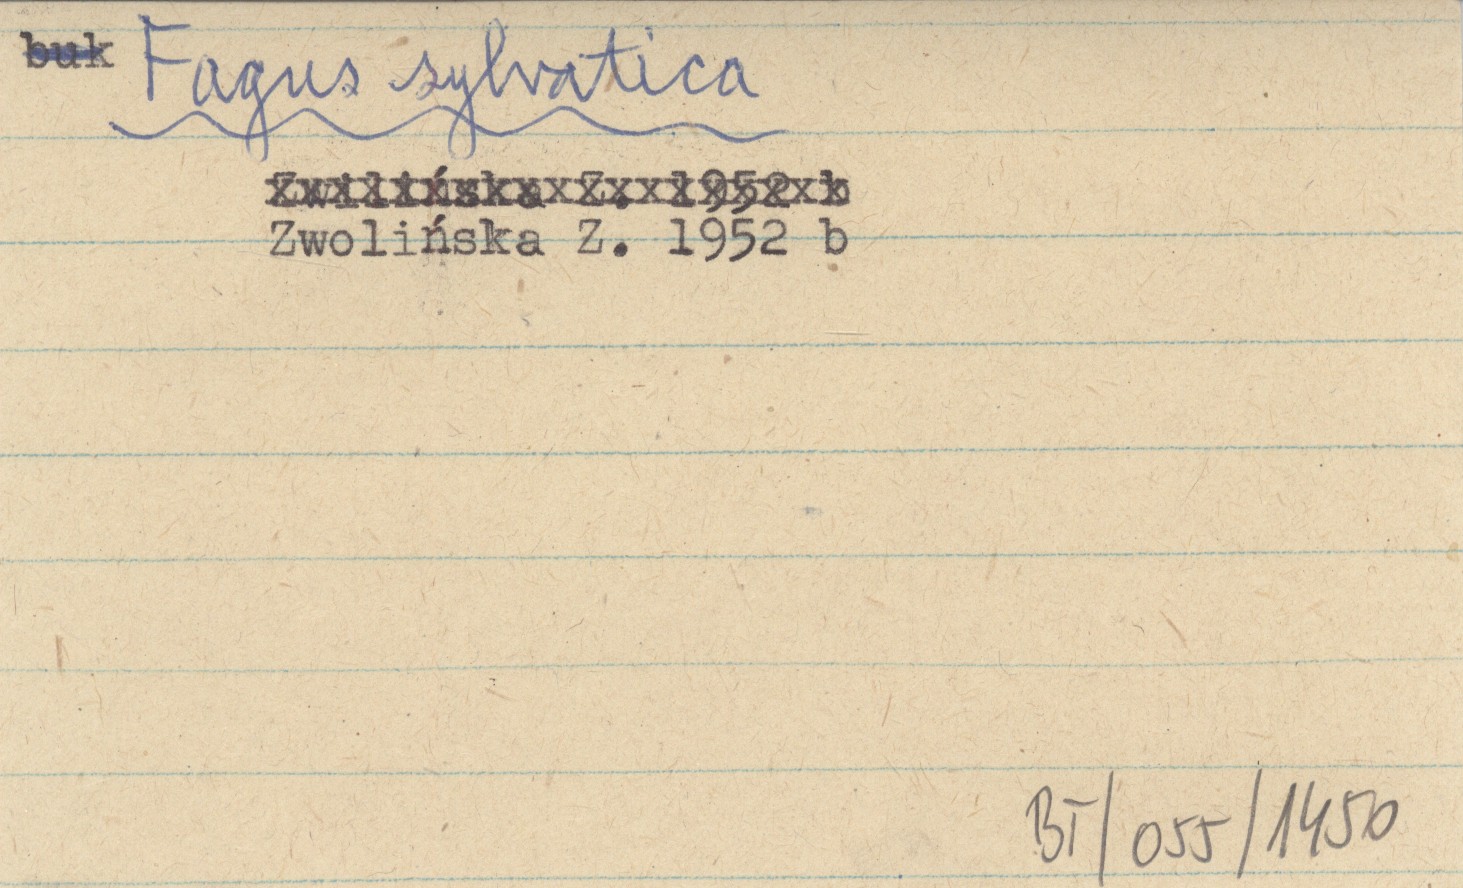 buk Fagus sylvatica
Zwilińska Z. 1952 b
Zwolińska Z. 1952 b
BT/055/1450